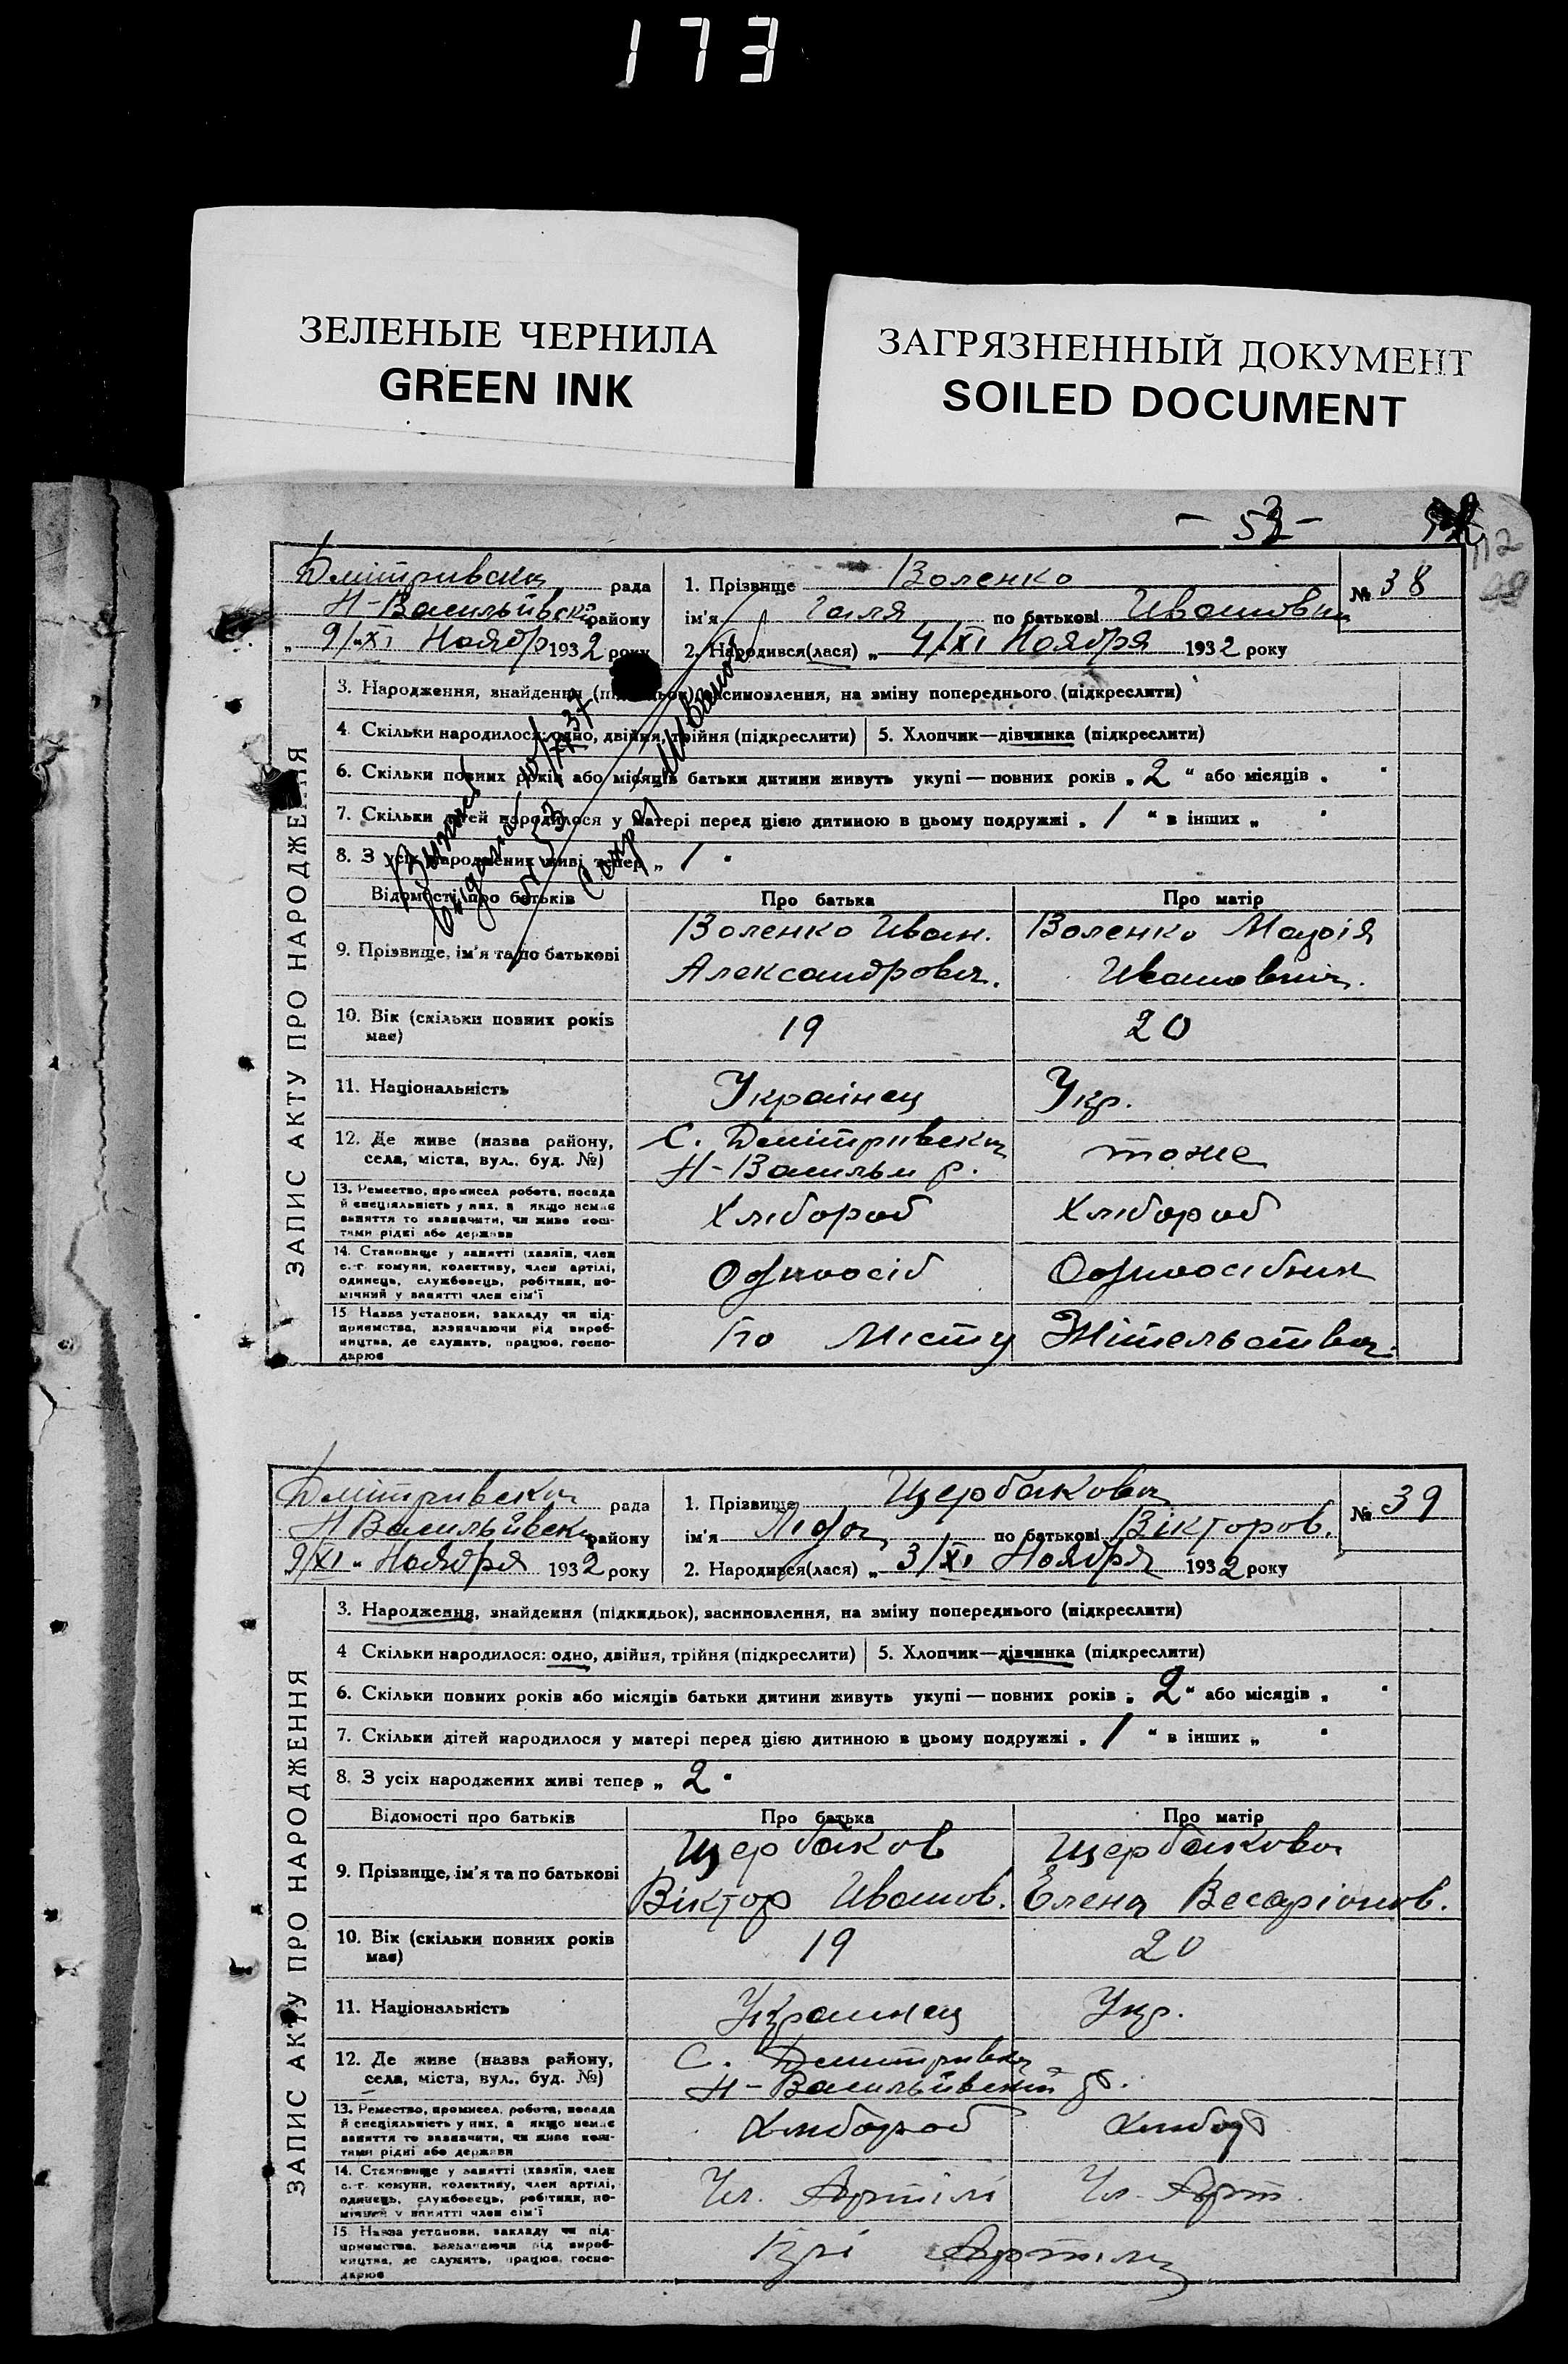 173
ЗЕЛЕНЫЕ ЧЕРНИЛА
GREEN INK
ЗАГРЯЗНЕННЫЙ ДОКУМЕНТ
SOILED DOCUMENT
Дмітривска рада
Н-Васильївск району
„ 9/XI Ноябр 1932 року
1. Прізвище Воленко
ім'я Галя по батькові Ивановна
№ 38
2. Народився(лася) „ 4/XI Ноября 1932 року
ЗАПИС АКТУ ПРО НАРОДЖЕННЯ
3. Народження, знайдення (підкидьок), засиновлення, на зміну попереднього (підкреслити)
4. Скільки народилося: одно, двійня, трійня (підкреслити) 5. Хлопчик—дівчинка (підкреслити)
6. Скільки повних років або місяців батьки дитини живуть укупі — повних років „ 2 “ або місяців „ “
7. Скільки дітей народилося у матері перед цією дитиною в цьому подружжі „ 1 “ в інших „ “
8. З усіх народжених живі тепер „ 1 “
Відомості про батьків Про батька Про матір
9. Прізвище, ім'я та по батькові
Воленко Иван. Александрович.
Воленко Марія Ивановна.
10. Вік (скільки повних років має) 19 20
11. Національність Українец Укр.
12. Де живе (назва району, села, міста, вул., буд. №)
С. Дмітривска
Н-Васильи р.
тоже
13. Ремество, промисел, робота, посада й спеціяльність у них, а якщо немає заняття то зазначити, чи живе коштами рідні або держави
Хлібороб Хлібороб
14. Становище у занятті (хазяїн, член с.-г. комуни, колективу, член артілі, одинець, службовець, робітник, помічний у занятті член сім'ї
Одноосіб Одноосібник
15. Назва установи, закладу чи підприємства, зазначаючи рід виробництва, де служить, працює, господарює
По Місту Жітельства.
Дмітривска рада
Н Васильївск району
9/XI „ Ноября 1932 року
1. Прізвище Щербакова
ім'я Ліда по батькові Вікторов.
№ 39
2. Народився(лася) „ 3/XI Ноября 1932 року
ЗАПИС АКТУ ПРО НАРОДЖЕННЯ
3. Народження, знайдення (підкидьок), засиновлення, на зміну попереднього (підкреслити)
4 Скільки народилося: одно, двійня, трійня (підкреслити) 5. Хлопчик—дівчинка (підкреслити)
6. Скільки повних років або місяців батьки дитини живуть укупі — повних років „ 2 “ або місяців „ “
7. Скільки дітей народилося у матері перед цією дитиною в цьому подружжі „ 1 “ в інших „ “
8. З усіх народжених живі тепер „ 2 “
Відомості про батьків Про батька Про матір
9. Прізвище, ім'я та по батькові
Щербаков
Віктор Иванов.
Щербакова
Елена Весаріонов.
10. Вік (скільки повних років має) 19 20
11. Національність Украинец Укр.
12. Де живе (назва району, села, міста, вул., буд. №)
С. Дмитривка
Н-Васильївский р.
13. Ремество, промисел, робота, посада й спеціяльність у них, а якщо немає заняття то зазначити, чи живе коштами рідні або держави
Хлибороб Хлибор
14. Становище у занятті (хазяїн, член с.-г. комуни, колективу, член артілі, одинець, службовець, робітник, помічний у занятті член сім'ї
Чл. Артілі Чл. Арт.
15. Назва установи, закладу чи підприємства, зазначаючи рід виробництва, де служить, працює, господарює
Артили